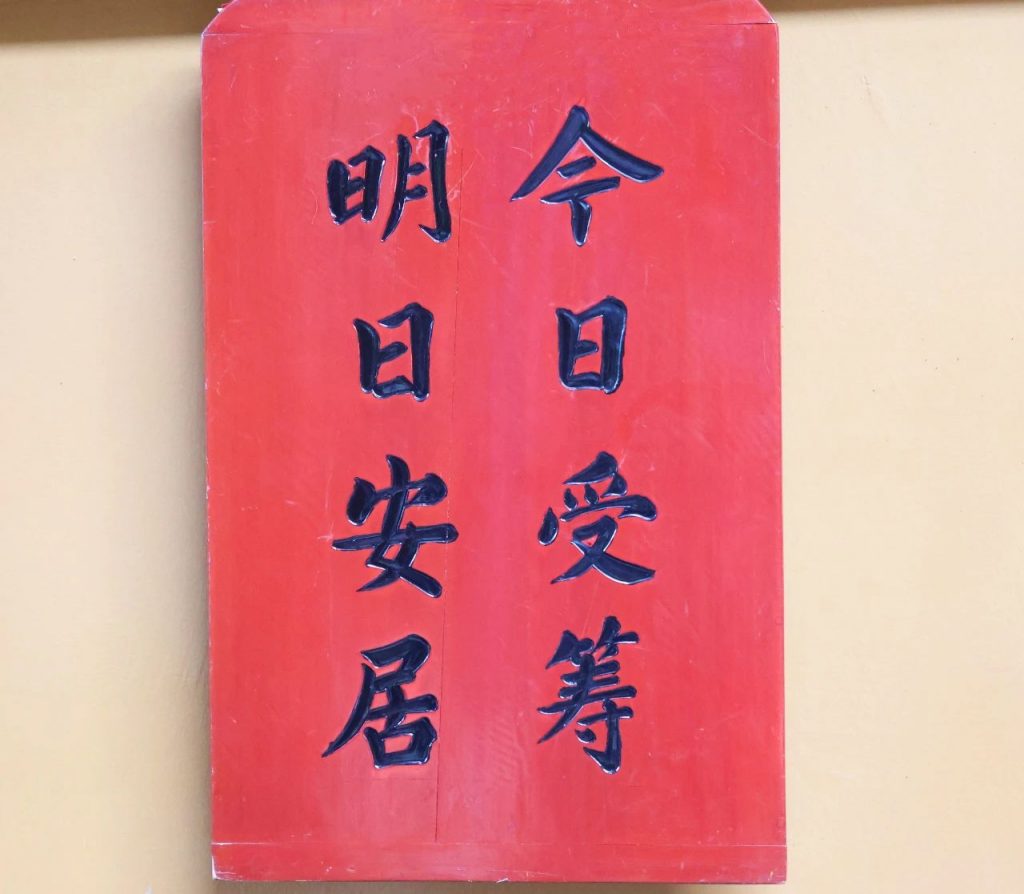 今日受筹
明日安居